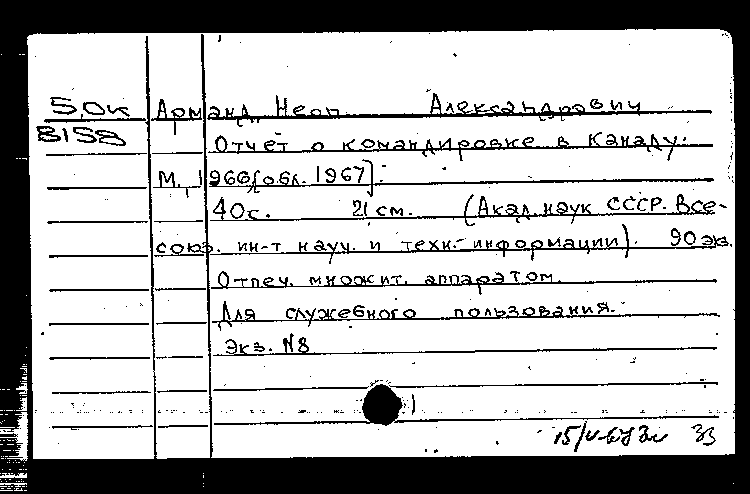 5.ок Арманд, Неон Александрович
8158
Отчет о командировке в Канаду.
М., 1966[обл. 1967].
40с. 21 см. (Акад. наук СССР. Все-
союз. ин-т науч. и техн. информации). 90 экз.
Отпеч. множит. аппаратом.
Для служебного пользования.
Экз. №8